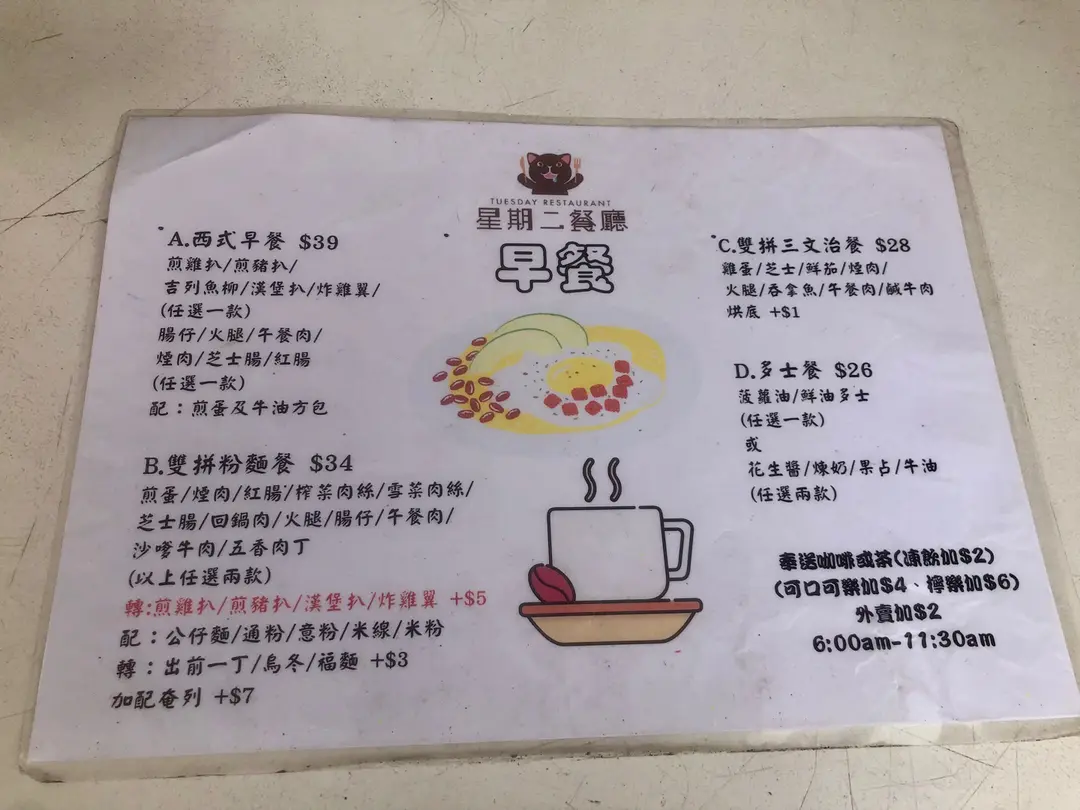 TUESDAY RESTAURANT
星期二餐廳
早餐
A.西式早餐 $39
煎雞扒/煎豬扒/
吉列魚柳/漢堡扒/炸雞翼/
(任選一款)
腸仔/火腿/午餐肉/
煙肉/芝士腸/紅腸
(任選一款)
配：煎蛋及牛油方包
B.雙拼粉麵餐 $34
煎蛋/煙肉/紅腸/榨菜肉絲/雪菜肉絲/
芝士腸/回鍋肉/火腿/腸仔/午餐肉/
沙嗲牛肉/五香肉丁
(以上任選兩款)
轉:煎雞扒/煎豬扒/漢堡扒/炸雞翼 +$5
配：公仔麵/通粉/意粉/米線/米粉
轉：出前一丁/烏冬/福麵 +$3
加配奄列 +$7
C.雙拼三文治餐 $28
雞蛋/芝士/鮮茄/煙肉/
火腿/吞拿魚/午餐肉/鹹牛肉
烘底 +$1
D.多士餐 $26
菠蘿油/鮮油多士
(任選一款)
或
花生醬/煉奶/果占/牛油
(任選兩款)
奉送咖啡或茶(凍飲加$2)
(可口可樂加$4、檸樂加$6)
外賣加$2
6:00am-11:30am